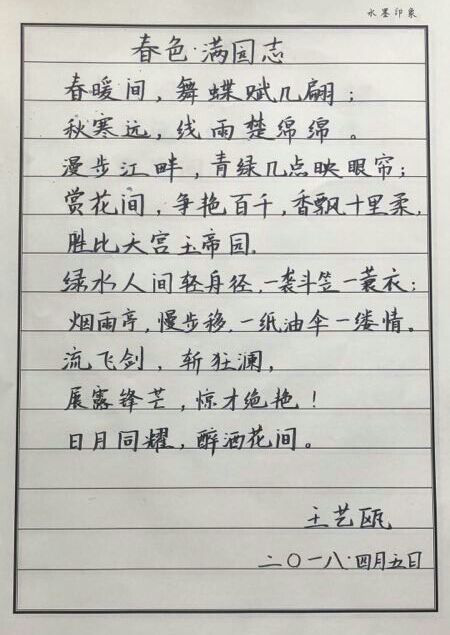 水墨印象
春色·满园志
春暖间，舞蝶赋几翩；
秋寒远，线雨楚绵绵。
漫步江畔，青绿几点映眼帘；
赏花间，争艳百千，香飘十里柔，
胜比天宫玉帝园。
绿水人间轻舟径，一袭斗笠一蓑衣；
烟雨亭，慢步移，一纸油伞一缕情。
流飞剑，斩狂澜，
展露锋芒，惊才绝艳！
日月同耀，醉洒花间。
王艺瓯
二〇一八·四月五日